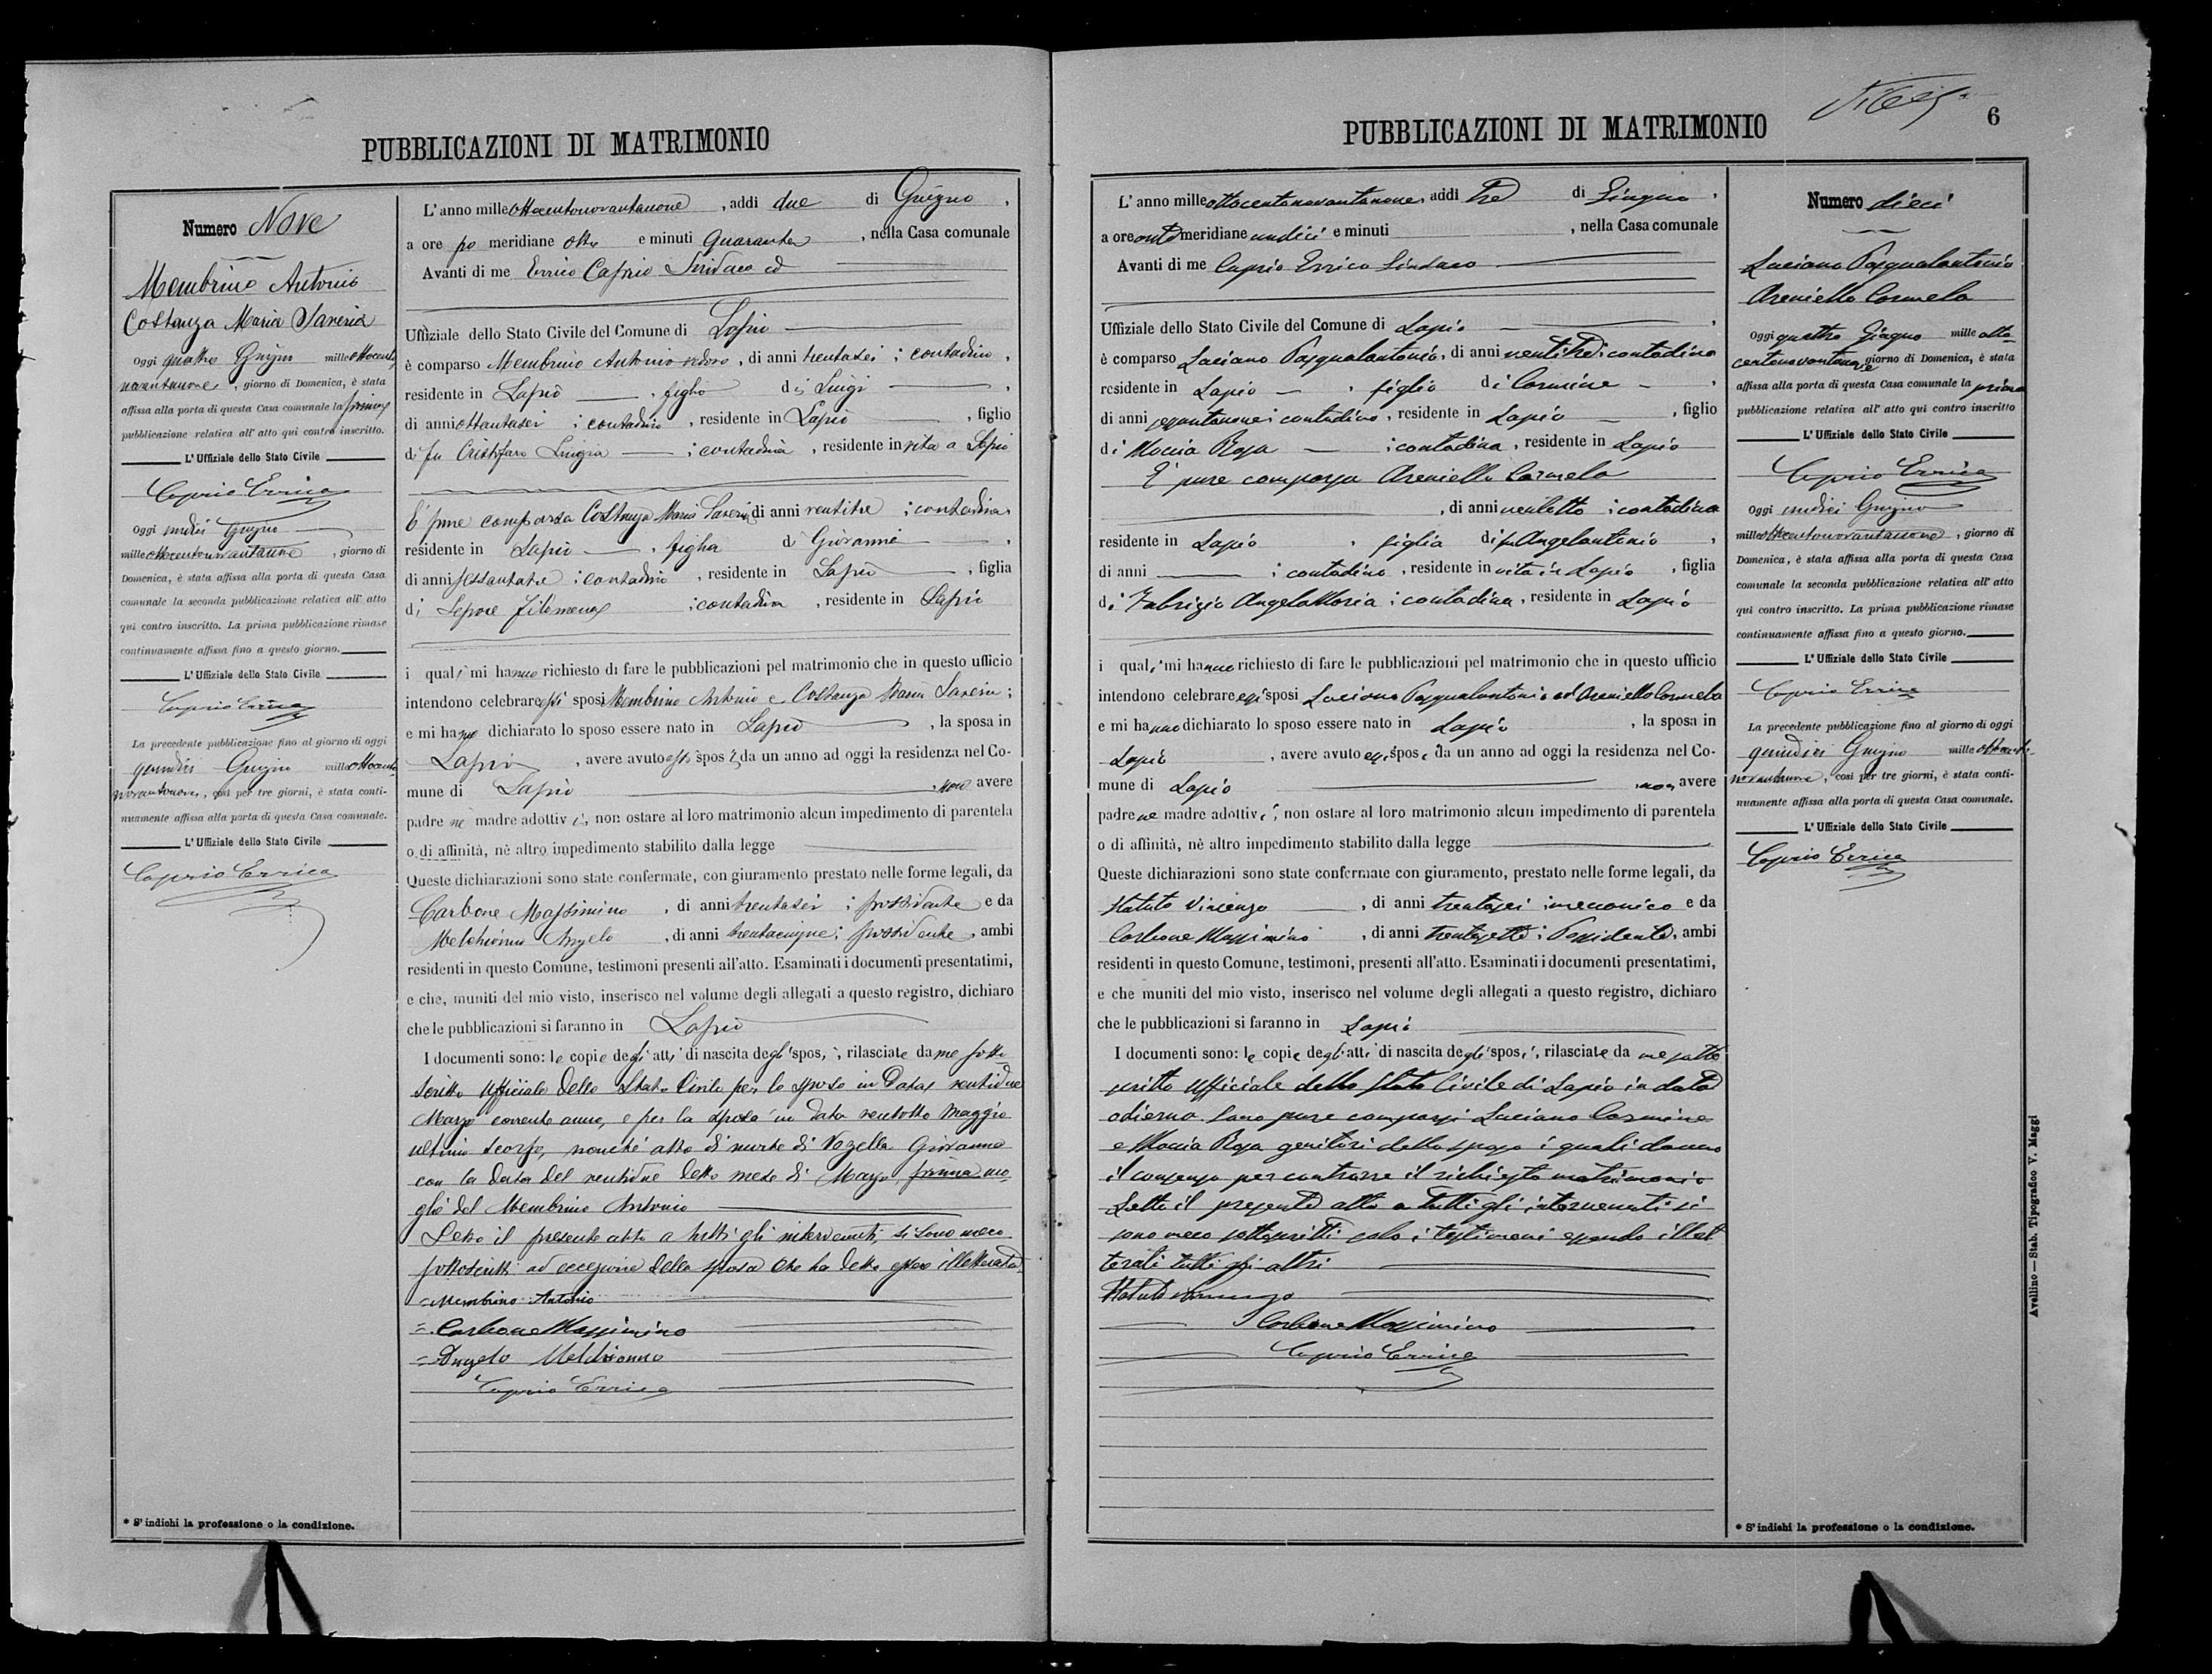 PUBBLICAZIONI DI MATRIMONIO
Numero Nove
Membrino Antonio
Costanza Maria Saveria
Oggi quattro Giugno mille ottocento
novantanove, giorno di Domenica, è stata
affissa alla porta di questa Casa comunale la prima
pubblicazione relativa all' atto qui contro inscritto.
L' Uffiziale dello Stato Civile
Caprio Errico
Oggi undici Giugno
mille ottocentonovantanove, giorno di
Domenica, è stata affissa alla porta di questa Casa
comunale la seconda pubblicazione relativa all' atto
qui contro inscritto. La prima pubblicazione rimase
continuamente affissa fino a questo giorno.
L' Uffiziale dello Stato Civile
Caprio Errico
La precedente pubblicazione fino al giorno di oggi
quindici Giugno mille ottocento
novantanove, così per tre giorni, è stata conti-
nuamente affissa alla porta di questa Casa comunale.
L' Uffiziale dello Stato Civile
Caprio Errico
* S' indichi la professione o la condizione.
L' anno mille ottocentonovantanove, addi due di Giugno,
a ore po meridiane otto e minuti Quaranta, nella Casa comunale
Avanti di me Errico Caprio Sindaco ed
Uffiziale dello Stato Civile del Comune di Lapio
è comparso Membrino Antonio vedovo, di anni trentasei; contadino,
residente in Lapio, figlio di Luigi,
di anni ottantasei; contadino, residente in Lapio, figlio
di fu Cristofaro Luigia; contadina, residente in vita a Lapio
E' pure comparsa Costanza Maria Saveria, di anni ventitre; contadina
residente in Lapio, figlia di Giovanni,
di anni sessantatre; contadino, residente in Lapio, figlia
di Lepore Filomena; contadina, residente in Lapio
i quali mi hanno richiesto di fare le pubblicazioni pel matrimonio che in questo ufficio
intendono celebrare essi sposi Membrino Antonio e Costanza Maria Saveria;
e mi hanno dichiarato lo sposo essere nato in Lapio, la sposa in
Lapio, avere avuto essi sposi da un anno ad oggi la residenza nel Co-
mune di Lapio, non avere
padre nè madre adottivi, non ostare al loro matrimonio alcun impedimento di parentela
o di affinità, nè altro impedimento stabilito dalla legge
Queste dichiarazioni sono state confermate, con giuramento prestato nelle forme legali, da
Carbone Massimino, di anni trentasei; possidente e da
Melchionno Angelo, di anni trentacinque; possidente, ambi
residenti in questo Comune, testimoni presenti all'atto. Esaminati i documenti presentatimi,
e che, muniti del mio visto, inserisco nel volume degli allegati a questo registro, dichiaro
che le pubblicazioni si faranno in Lapio
I documenti sono: le copie degli atti di nascita degli sposi, rilasciate da me sotto-
scritto Ufficiale dello Stato Civile per lo sposo in data ventidue
Marzo corrente anno, e per la sposa in data ventotto Maggio
ultimo scorso, nonchè atto di morte di Vozella Giovanna
con la data del ventidue detto mese di Marzo, prima mo-
glie del Membrino Antonio
Letto il presente atto a tutti gli intervenuti, si sono meco
sottoscritti ad eccezione della sposa che ha detto essere illetterata
=Membrino Antonio
= Carbone Massimino
= Angelo Melchionno
Caprio Errico
6
PUBBLICAZIONI DI MATRIMONIO
L' anno mille ottocentonovantanove, addi tre di Giugno,
a ore anti meridiane undici e minuti, nella Casa comunale
Avanti di me Caprio Errico Sindaco
Uffiziale dello Stato Civile del Comune di Lapio,
è comparso Luciano Pasqualantonio, di anni ventitre; contadino
residente in Lapio, figlio di Carmine,
di anni sessantanove; contadino, residente in Lapio, figlio
di Moccia Rosa; contadina, residente in Lapio
E' pure comparsa Areniello Carmela
, di anni ventotto; contadina
residente in Lapio, figlia di fu Angelantonio,
di anni; contadino, residente in vita in Lapio, figlia
di Fabrizio Angela Maria; contadina, residente in Lapio
i quali mi hanno richiesto di fare le pubblicazioni pel matrimonio che in questo ufficio
intendono celebrare essi sposi Luciano Pasqualantonio ed Areniello Carmela
e mi hanno dichiarato lo sposo essere nato in Lapio, la sposa in
Lapio, avere avuto essi sposi da un anno ad oggi la residenza nel Co-
mune di Lapio, non avere
padre ne madre adottivi, non ostare al loro matrimonio alcun impedimento di parentela
o di affinità, nè altro impedimento stabilito dalla legge
Queste dichiarazioni sono state confermate con giuramento, prestato nelle forme legali, da
Statuto Vincenzo, di anni trentasei; meccanico e da
Carbone Massimino, di anni trentasette; Possidente, ambi
residenti in questo Comune, testimoni, presenti all'atto. Esaminati i documenti presentatimi,
e che muniti del mio visto, inserisco nel volume degli allegati a questo registro, dichiaro
che le pubblicazioni si faranno in Lapio
I documenti sono: le copie degli atti di nascita degli sposi, rilasciate da me sotto
scritto Ufficiale dello Stato Civile di Lapio in data
odierna. Sono pure comparsi Luciano Carmine
e Moccia Rosa genitori dello sposo i quali danno
il consenso per contrarre il richiesto matrimonio
Letto il presente atto a tutti gli intervenuti si
sono meco sottoscritti solo i testimoni essendo illet
terati tutti gli altri
Statuto Vincenzo
Carbone Massimino
Caprio Errico
Numero dieci
Luciano Pasqualantonio
Areniello Carmela
Oggi quattro Giugno mille otto-
centonovantanove, giorno di Domenica, è stata
affissa alla porta di questa Casa comunale la prima
pubblicazione relativa all' atto qui contro inscritto
L' Uffiziale dello Stato Civile
Caprio Errico
Oggi undici Giugno
mille ottocentonovantanove, giorno di
Domenica, è stata affissa alla porta di questa Casa
comunale la seconda pubblicazione relativa all' atto
qui contro inscritto. La prima pubblicazione rimase
continuamente affissa fino a questo giorno.
L' Uffiziale dello Stato Civile
Caprio Errico
La precedente pubblicazione fino al giorno di oggi
quindici Giugno mille ottocento-
novantanove, così per tre giorni, è stata conti-
nuamente affissa alla porta di questa Casa comunale.
L' Uffiziale dello Stato Civile
Caprio Errico
* S' indichi la professione o la condizione.
Avellino — Stab. Tipografico V. Maggi